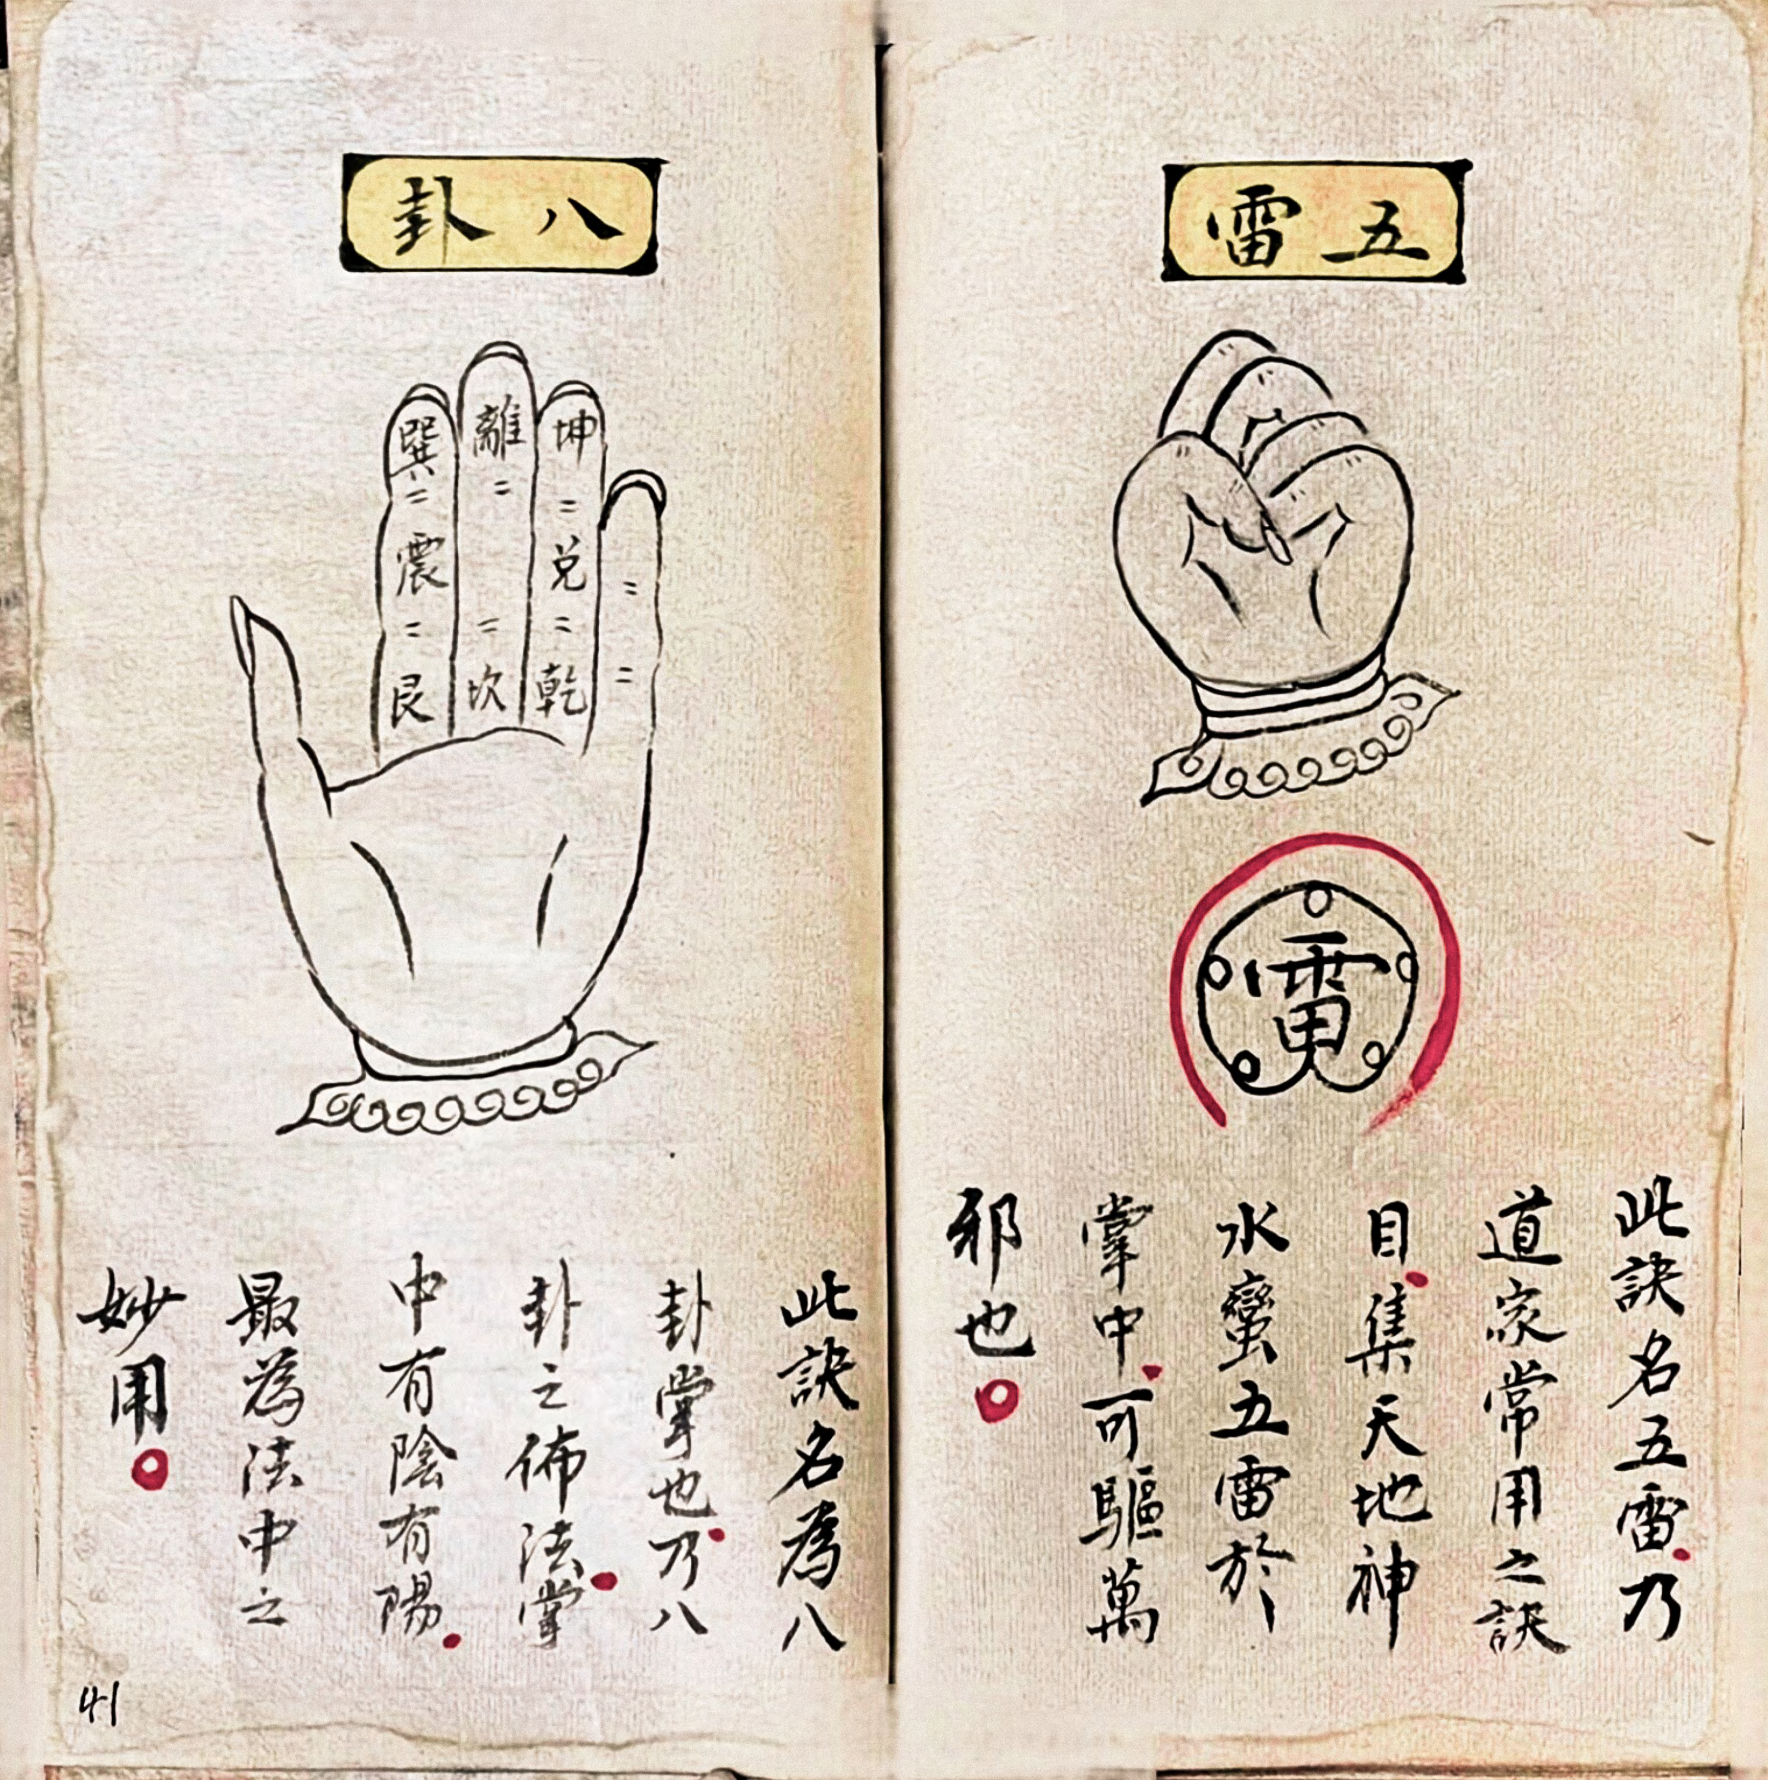 五雷
雷
此訣名五雷乃
道家常用之訣
目集天地神
水蠻五雷於
掌中可驅萬
邪也
八卦
巽 離 坤
震 兌
艮 坎 乾
此訣名為八
卦掌也乃八
卦之佈法掌
中有陰有陽
最為法中之
妙用
41